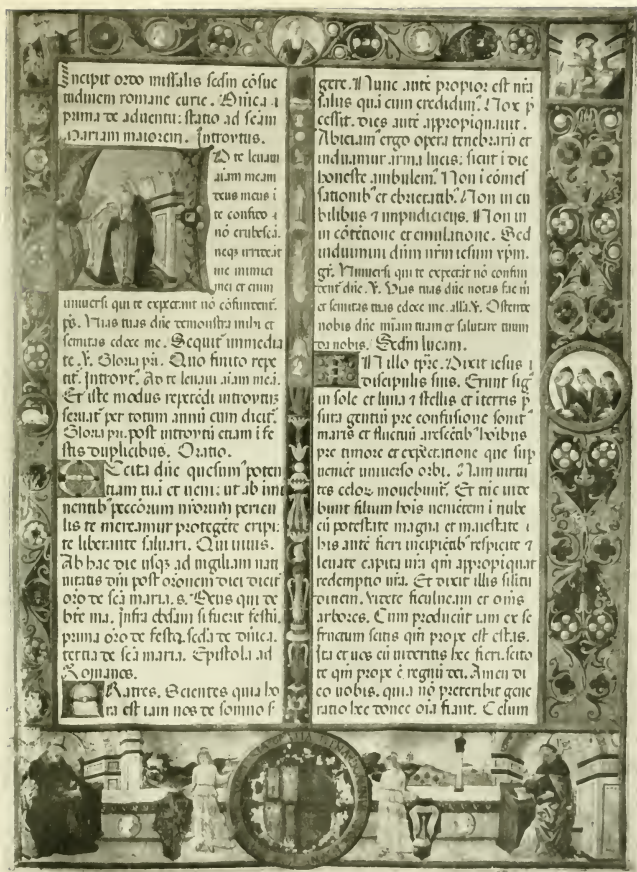 Incipit ordo missalis scdm cōsue
tudinem romane curie. Dnica i
prima de aduentu: statio ad scām
Mariam maiorem. Introytus.
AD te leuaui
aīam meam
deus meus i
te confido
nō erubescā.
neqȝ irrideāt
me inimici
mei et enim
uniuersi qui te expectāt nō cōfundent.
pš. Uias tuas dñe demonstra mihi et
semitas edoce me. Sequit immedia
te. ℣. Gloria pri. Quo finito repe
tit. Introyt. Ad te leuaui aīam meā.
Et iste modus repetēdi introytus
seruat per totum annū cum dicit.
Gloria pri. post introytū etiam i fe
stis duplicibus. Oratio.
EXcita dñe quesum poten
tiam tuā et ueni: ut ab im
nentib peccōrum nrōrum pericu
lis te mereamur protegēte eripi:
te liberante saluari. Qui uiuis.
Ab hac die usqȝ ad uigiliam nati
uitatis dñi post orōnem diei dicit
orō de scā maria. s. Deus qui de
bte ma. Infra ebdam si fuerit festū.
prima orō de festo. scda de dnica.
tertia de scā maria. Epistola ad
Romanos.
FRatres. Scientes quia ho
ra est iam nos de somno s
gere. Nunc autē propior est nrā
salus quā cum credidim. Nox p̄
cessit. dies autē appropinquauit.
Abiciam ergo opera tenebrarū et
induamur arma lucis: sicut i die
honeste ambulem. Non i cōmes
sationib et ebrietatib. Non in cu
bilibus ⁊ impudicicijs. Non in
in cōtētione et emulatione. Sed
induimini dñm nrm iesum xpm.
gr. Uniuersi qui te expectāt nō confun
dent dñe. ℣. Uias tuas dñe notas fac m
et semitas tuas edoce me. alla. ℣. Ostende
nobis dñe miām tuam et salutare tuum
da nobis. Scdm lucam.
IN illo tpre. Dixit iesus
discipulis suis. Erunt sig
in sole et luna ⁊ stellis et i terris p̄
sura gentiū pre confusione sonit
maris et fluctuū arescētib hoibus
pre timore et expectatione que sup
ueniēt uniuerso orbi. Nam uirtu
tes celor mouebunt. Et tūc uide
bunt filium hois uenietem i nube
cū potestate magna et maiestate
his autē fieri incipiētib respicite ⁊
leuate capita urā qm appropiquat
redemptio urā. Et dixit illis silitu
dinem. Videte ficulneam et om̄s
arbores. Cum producūt iam ex se
fructum scitis qm prope est estas.
Ita et uos cū uideritis hec fieri. scito
te qm prope ē regnū dei. Amen di
co uobis. quia nō preteribit gene
ratio hec donec oīa fiant. Celum